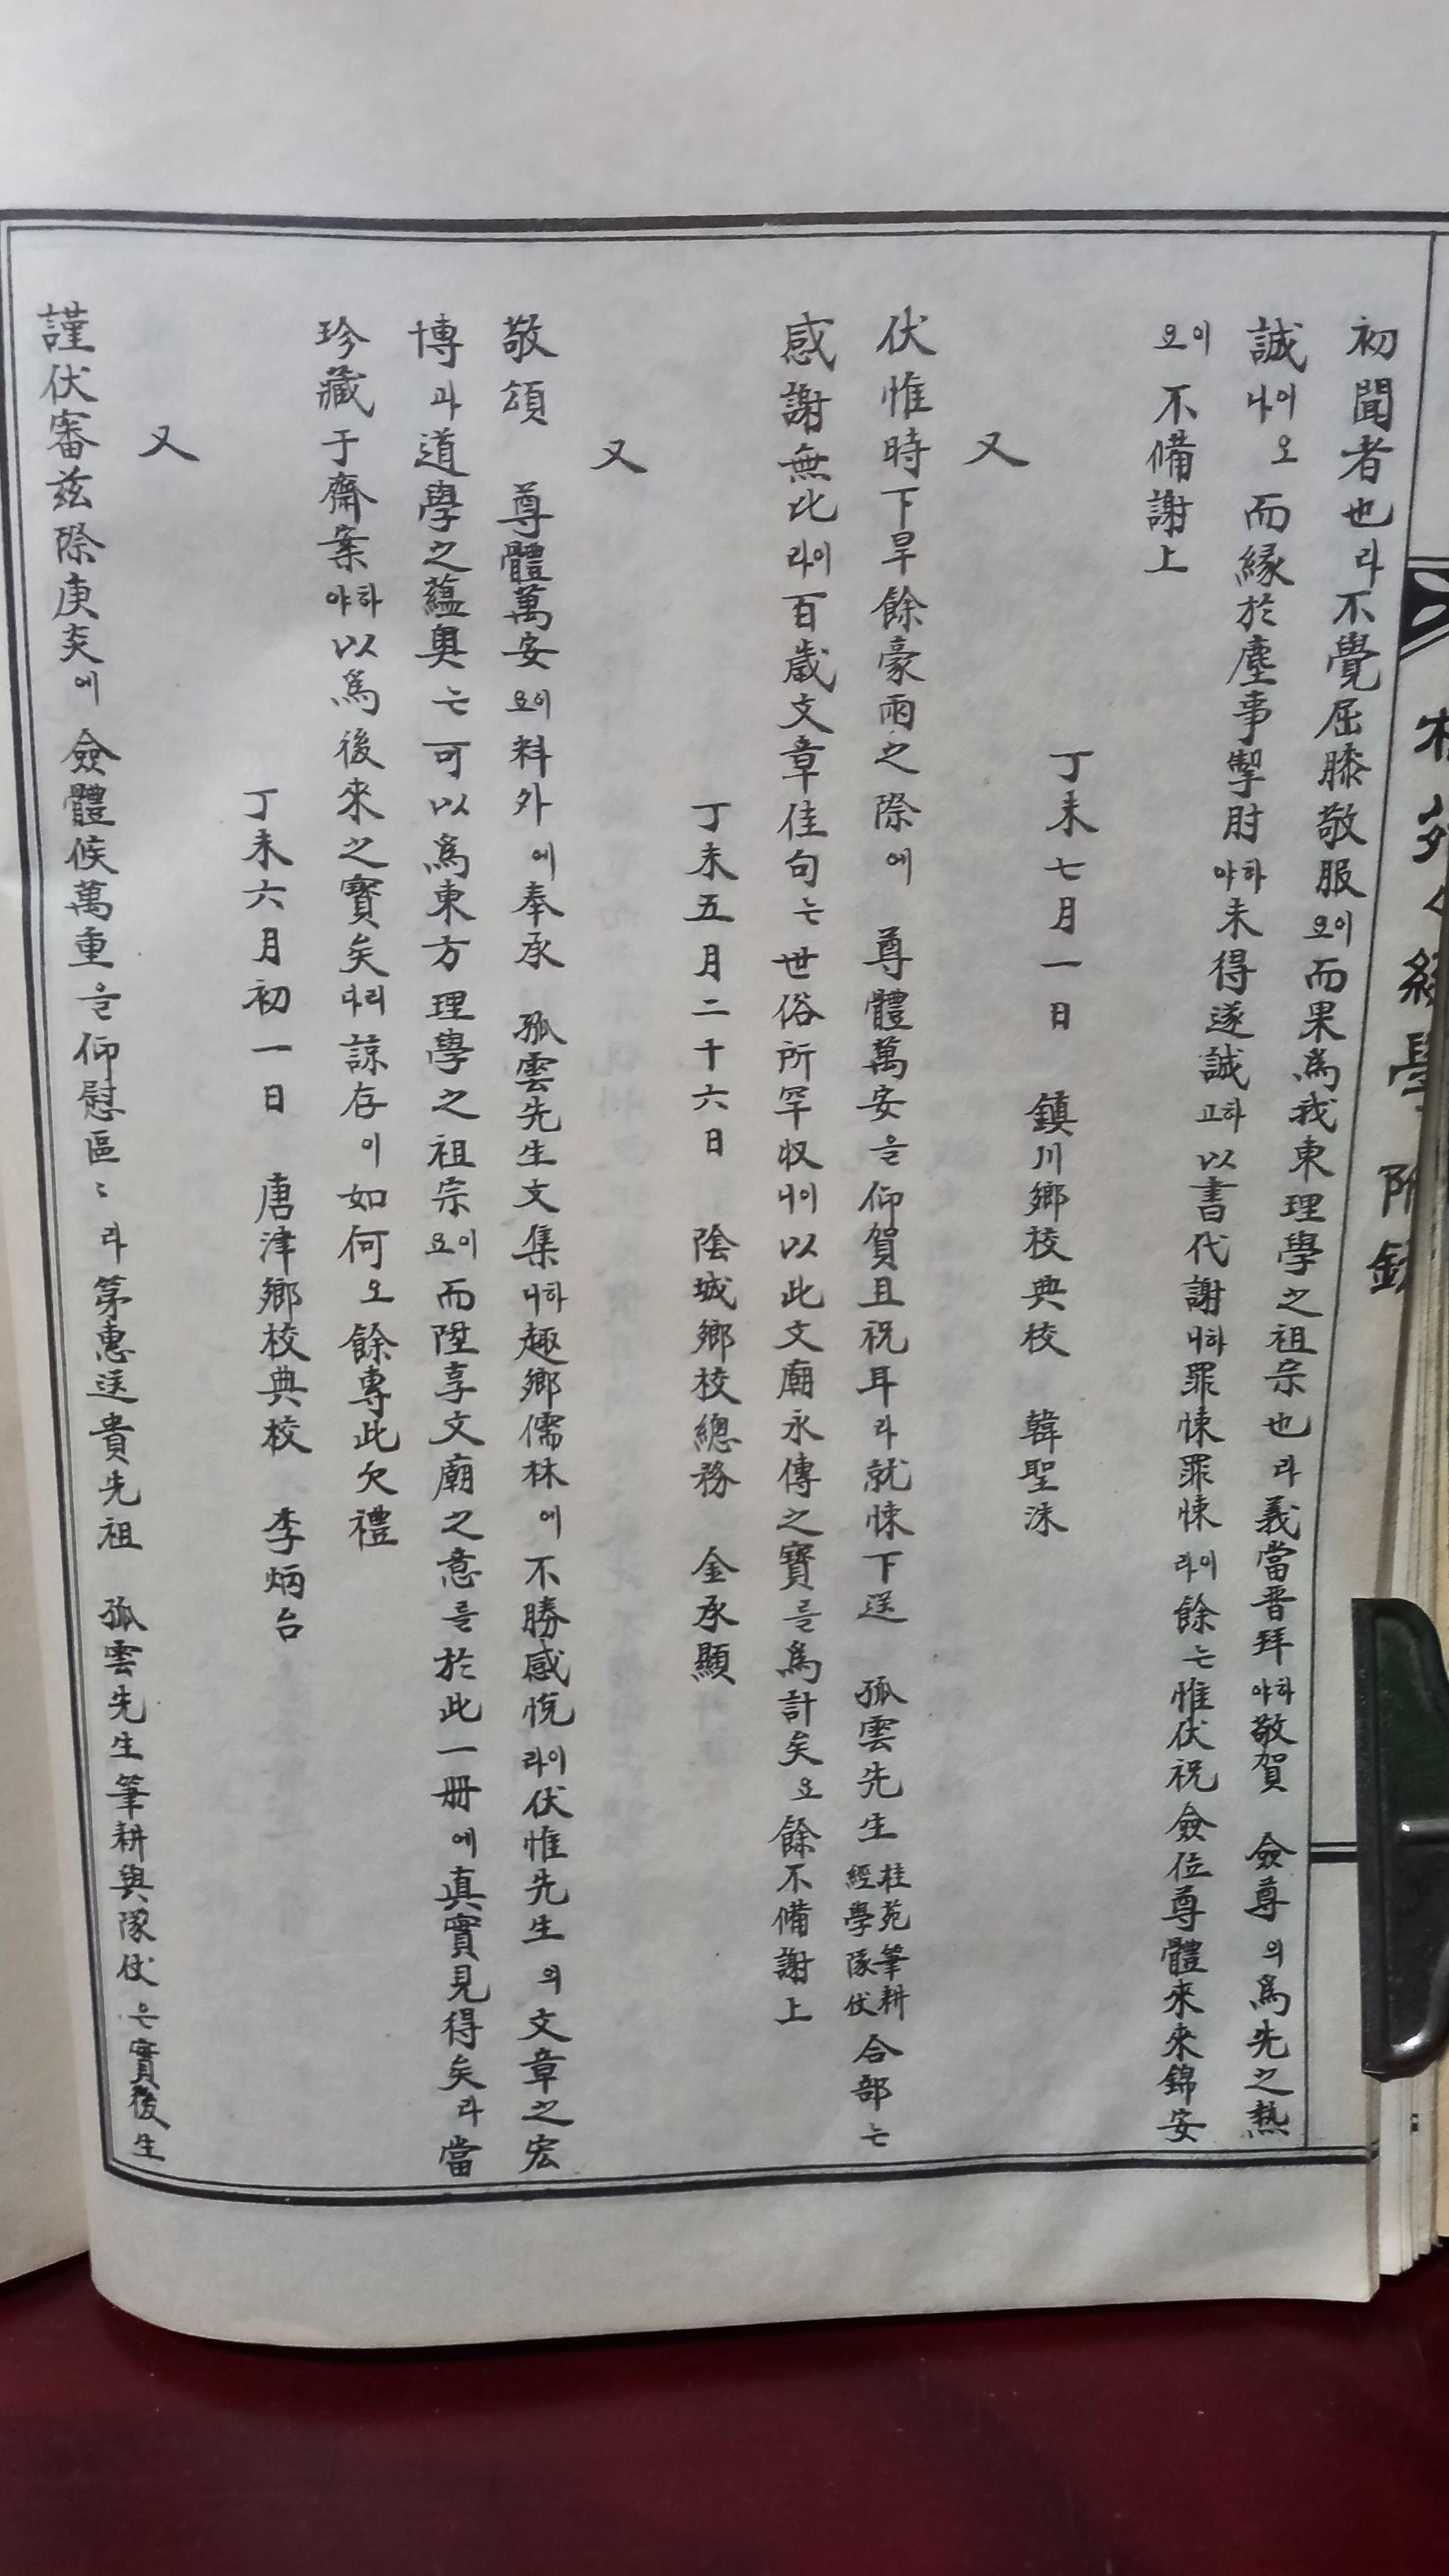 初聞者也라不覺屈膝敬服이요而果爲我東理學之祖宗也라義當晋拜하야敬賀 僉尊의爲先之熱
誠이나오而緣於塵事掣肘하야未得遂誠하고以書代謝하니罪悚罪悚이라餘는惟伏祝僉位尊體來來錦安
이요不備謝上
丁未七月一日 鎭川鄉校典校 韓聖洙
又
伏惟時下旱餘豪雨之際에 尊體萬安을仰賀且祝耳라就悚下送 孤雲先生桂苑筆耕經學隊仗合部는
感謝無比이라百歲文章佳句는世俗所罕収이니以此文廟永傳之寶를爲計矣요餘不備謝上
丁未五月二十六日 陰城鄉校總務 金承顯
又
敬頌 尊體萬安이요料外에奉承 孤雲先生文集하니趣鄉儒林에不勝感悅이라伏惟先生의文章之宏
博과道學之蘊奧는可以爲東方理學之祖宗이요而陞享文廟之意를於此一冊에真實見得矣라當
珍藏于齋案하야以爲後來之寶矣리니諒存이如何오餘專此欠禮
丁未六月初一日 唐津鄉校典校 李炳台
又
謹伏審兹除庚炎에 僉體候萬重을仰慰區〻라第惠送貴先祖 孤雲先生筆耕與隊仗은實後生
桂苑 經學 附錄